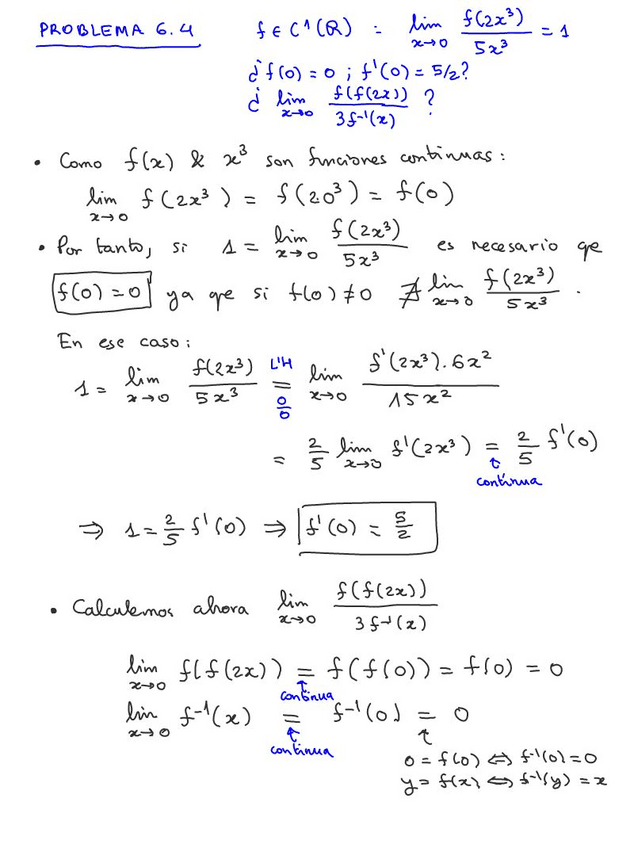 PROBLEMA 6.4 f ∈ C¹(ℝ) : lim x→0 f(2x³)/5x³ = 1
¿f(0) = 0 ; f'(0) = 5/2?
¿ lim x→0 f(f(2x))/3f⁻¹(x) ?
• Como f(x) & x³ son funciones continuas:
lim x→0 f(2x³) = f(2.0³) = f(0)
• Por tanto, si 1 = lim x→0 f(2x³)/5x³ es necesario que
f(0) = 0 ya que si f(0) ≠ 0 ∄ lim x→0 f(2x³)/5x³ .
En ese caso:
1 = lim x→0 f(2x³)/5x³ = L'H 0/0 lim x→0 f'(2x³).6x²/15x²
= 2/5 lim x→0 f'(2x³) = 2/5 f'(0)
↑
continua
⇒ 1 = 2/5 f'(0) ⇒ f'(0) = 5/2
• Calculemos ahora lim x→0 f(f(2x))/3f⁻¹(x)
lim x→0 f(f(2x)) = f(f(0)) = f(0) = 0
↑
continua
lim x→0 f⁻¹(x) = f⁻¹(0) = 0
↑ ↑
continua
0 = f(0) ⇔ f⁻¹(0) = 0
y = f(x) ⇔ f⁻¹(y) = x